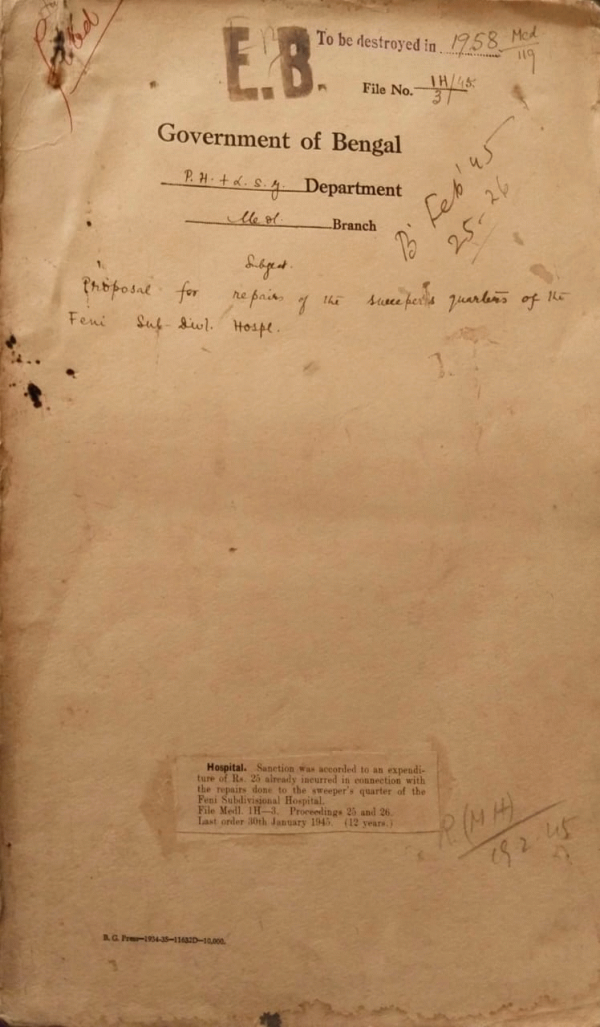 E.B.
To be destroyed in 1958 Med
119
File No. 1H/45
3
Government of Bengal
P.H. + L.S.G. Department
Medl. Branch
B Feb '45
25-26
Subject.
Proposal for repairs of the sweeper's quarters of the
Feni Sub-Divl. Hospl.
Hospital. Sanction was accorded to an expendi-
ture of Rs. 25 already incurred in connection with
the repairs done to the sweeper's quarter of the
Feni Subdivisional Hospital.
File Medl. 1H—3. Proceedings 25 and 26.
Last order 30th January 1945. (12 years.)
R (MH)
B. G. Press—1934-35—11632D—10,000.